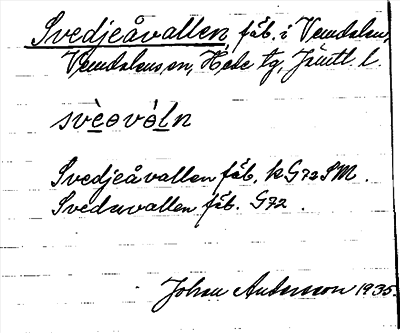 Svedjeåvallen fäb. i Vemdalen,
Vemdalens sn, Hede tg, Jämtl. l.
svèɵvȯ̀ln
Svedjeåvallen fäb. kG72SM.
Sveduvallen fäb. G72.
Johan Anderson 1935.